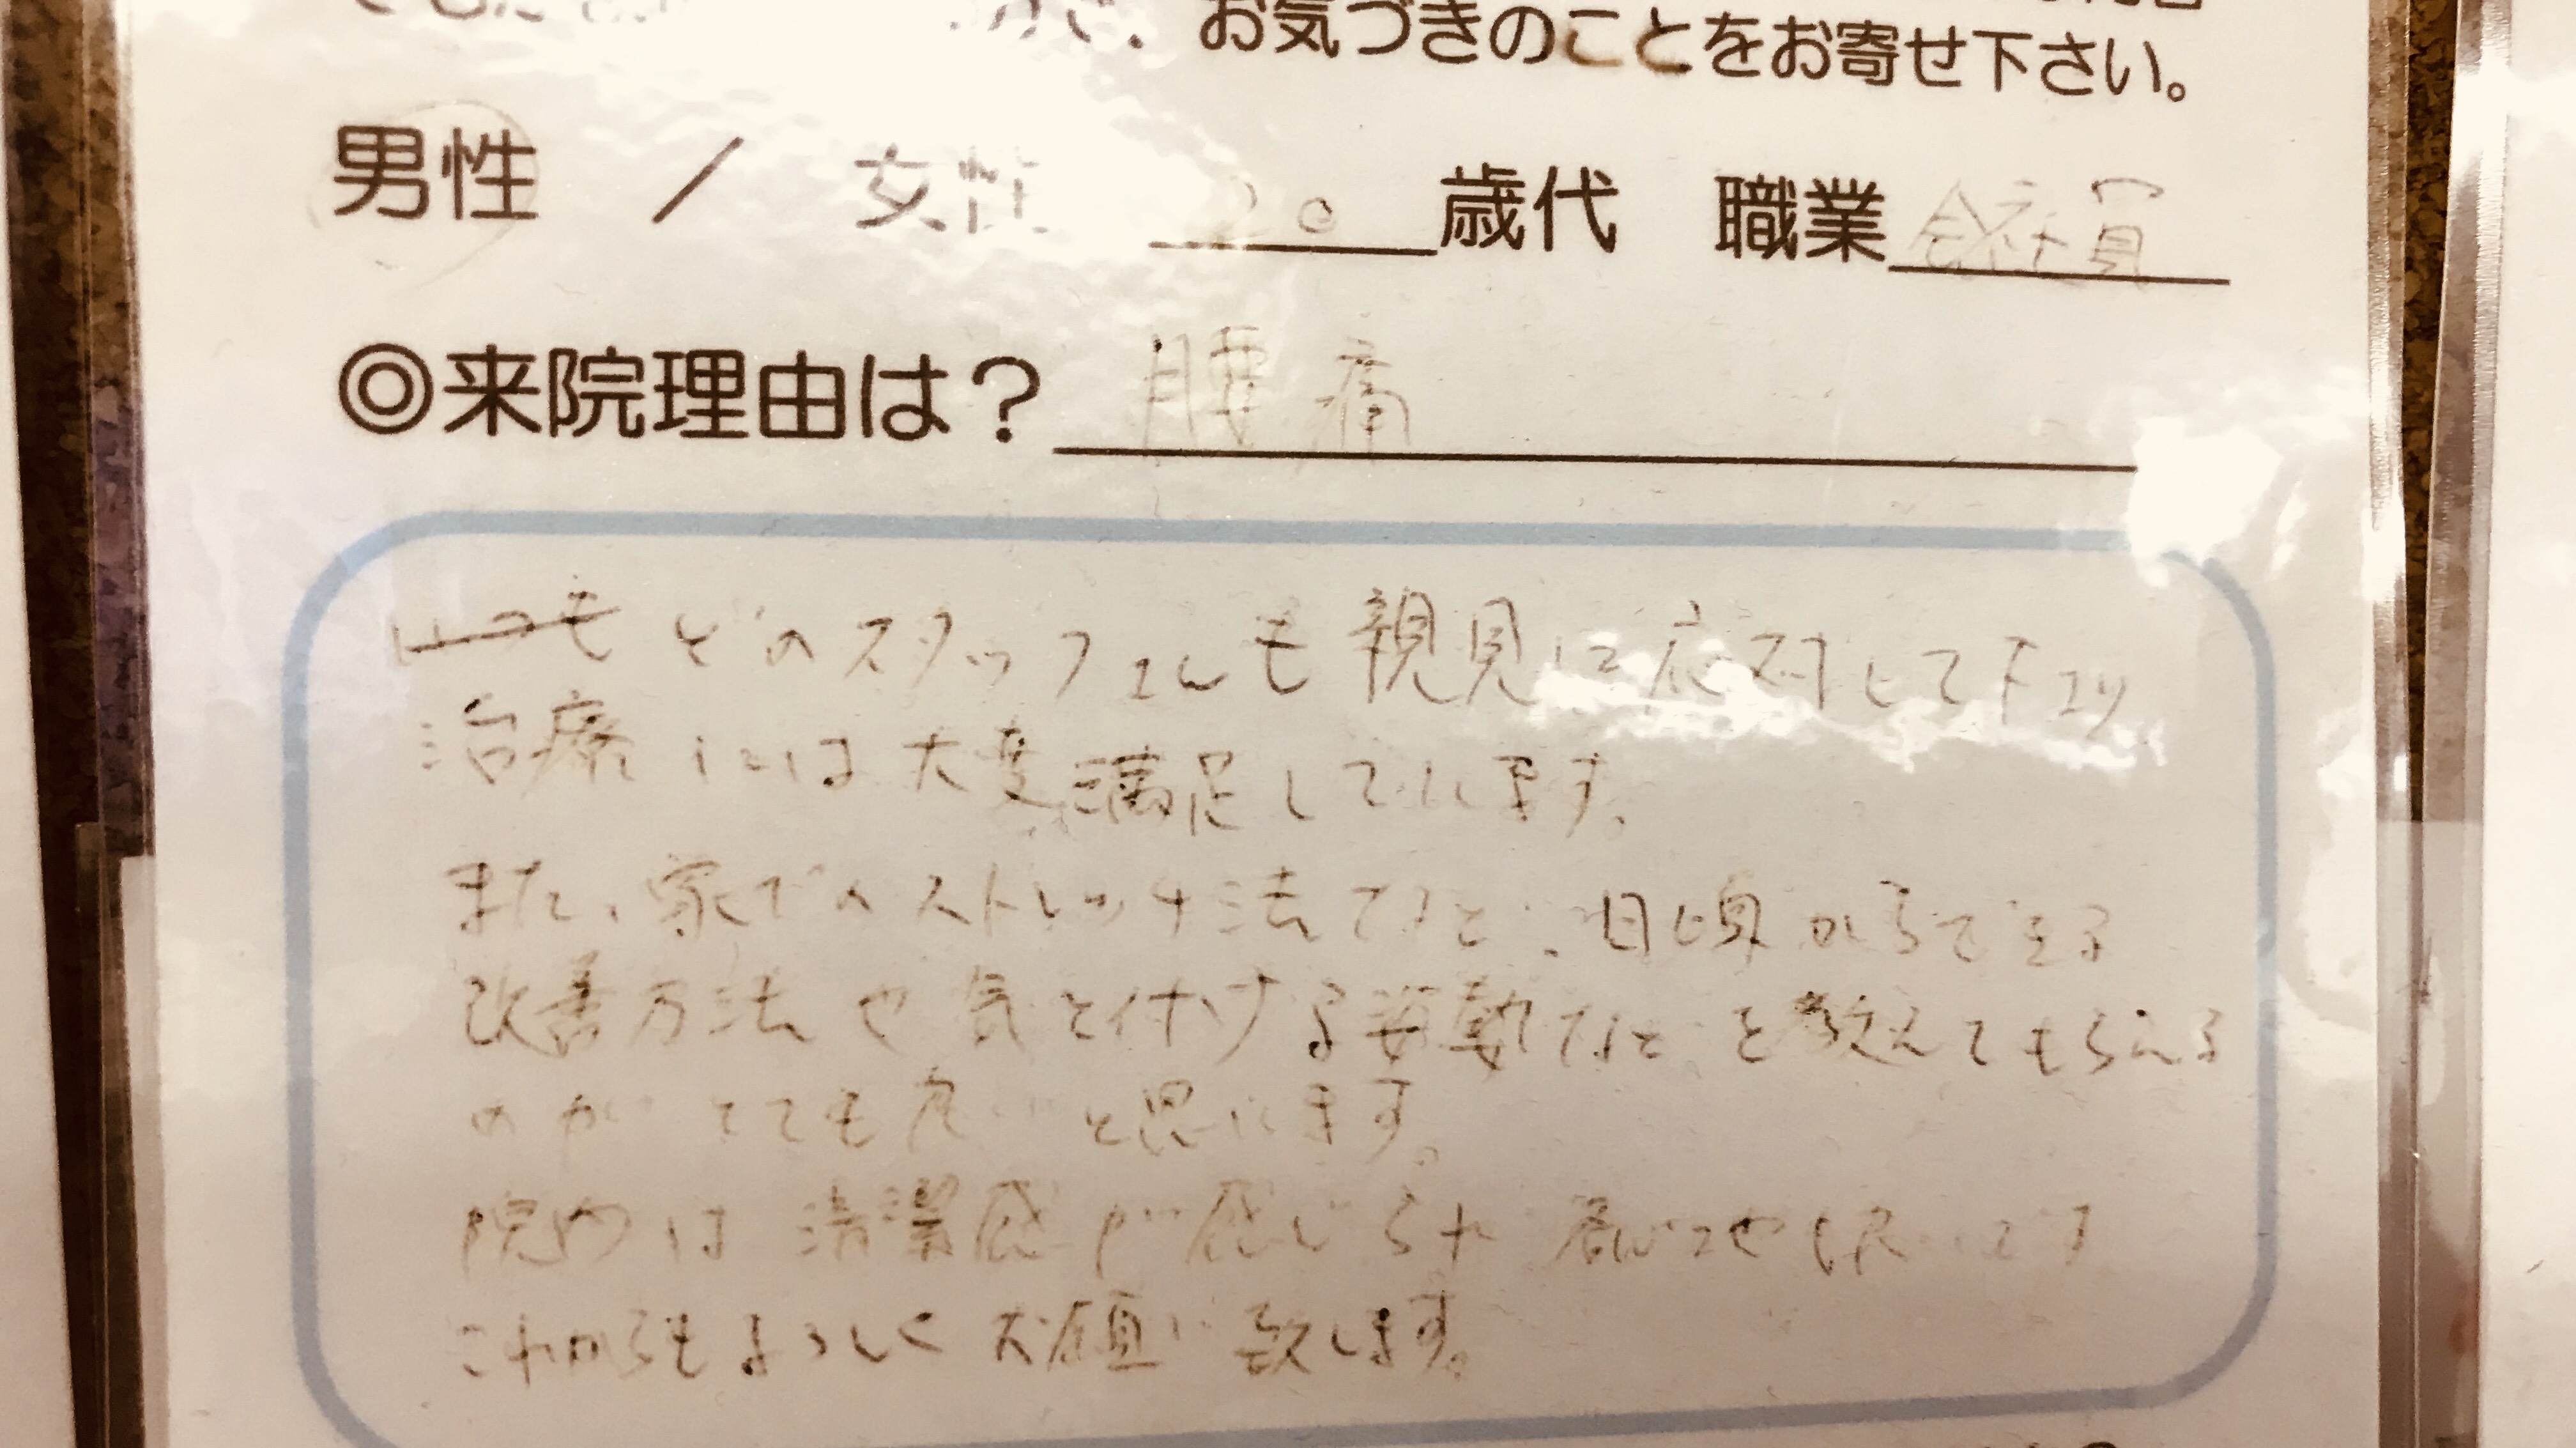 お気づきのことをお寄せ下さい。
男性 ／ 女性 20歳代 職業 会社員
◎来院理由は？ 腰痛
いつも どのスタッフさんも親見に応対して下さり
治療には大変満足しています。
また、家でのストレッチ法など、日頃からできる
改善方法や気を付ける姿勢などを教えてもらえる
のがとても良いと思います。
院内は清潔感が感じられ 居心地も良いです
これからもよろしくお願い致します。